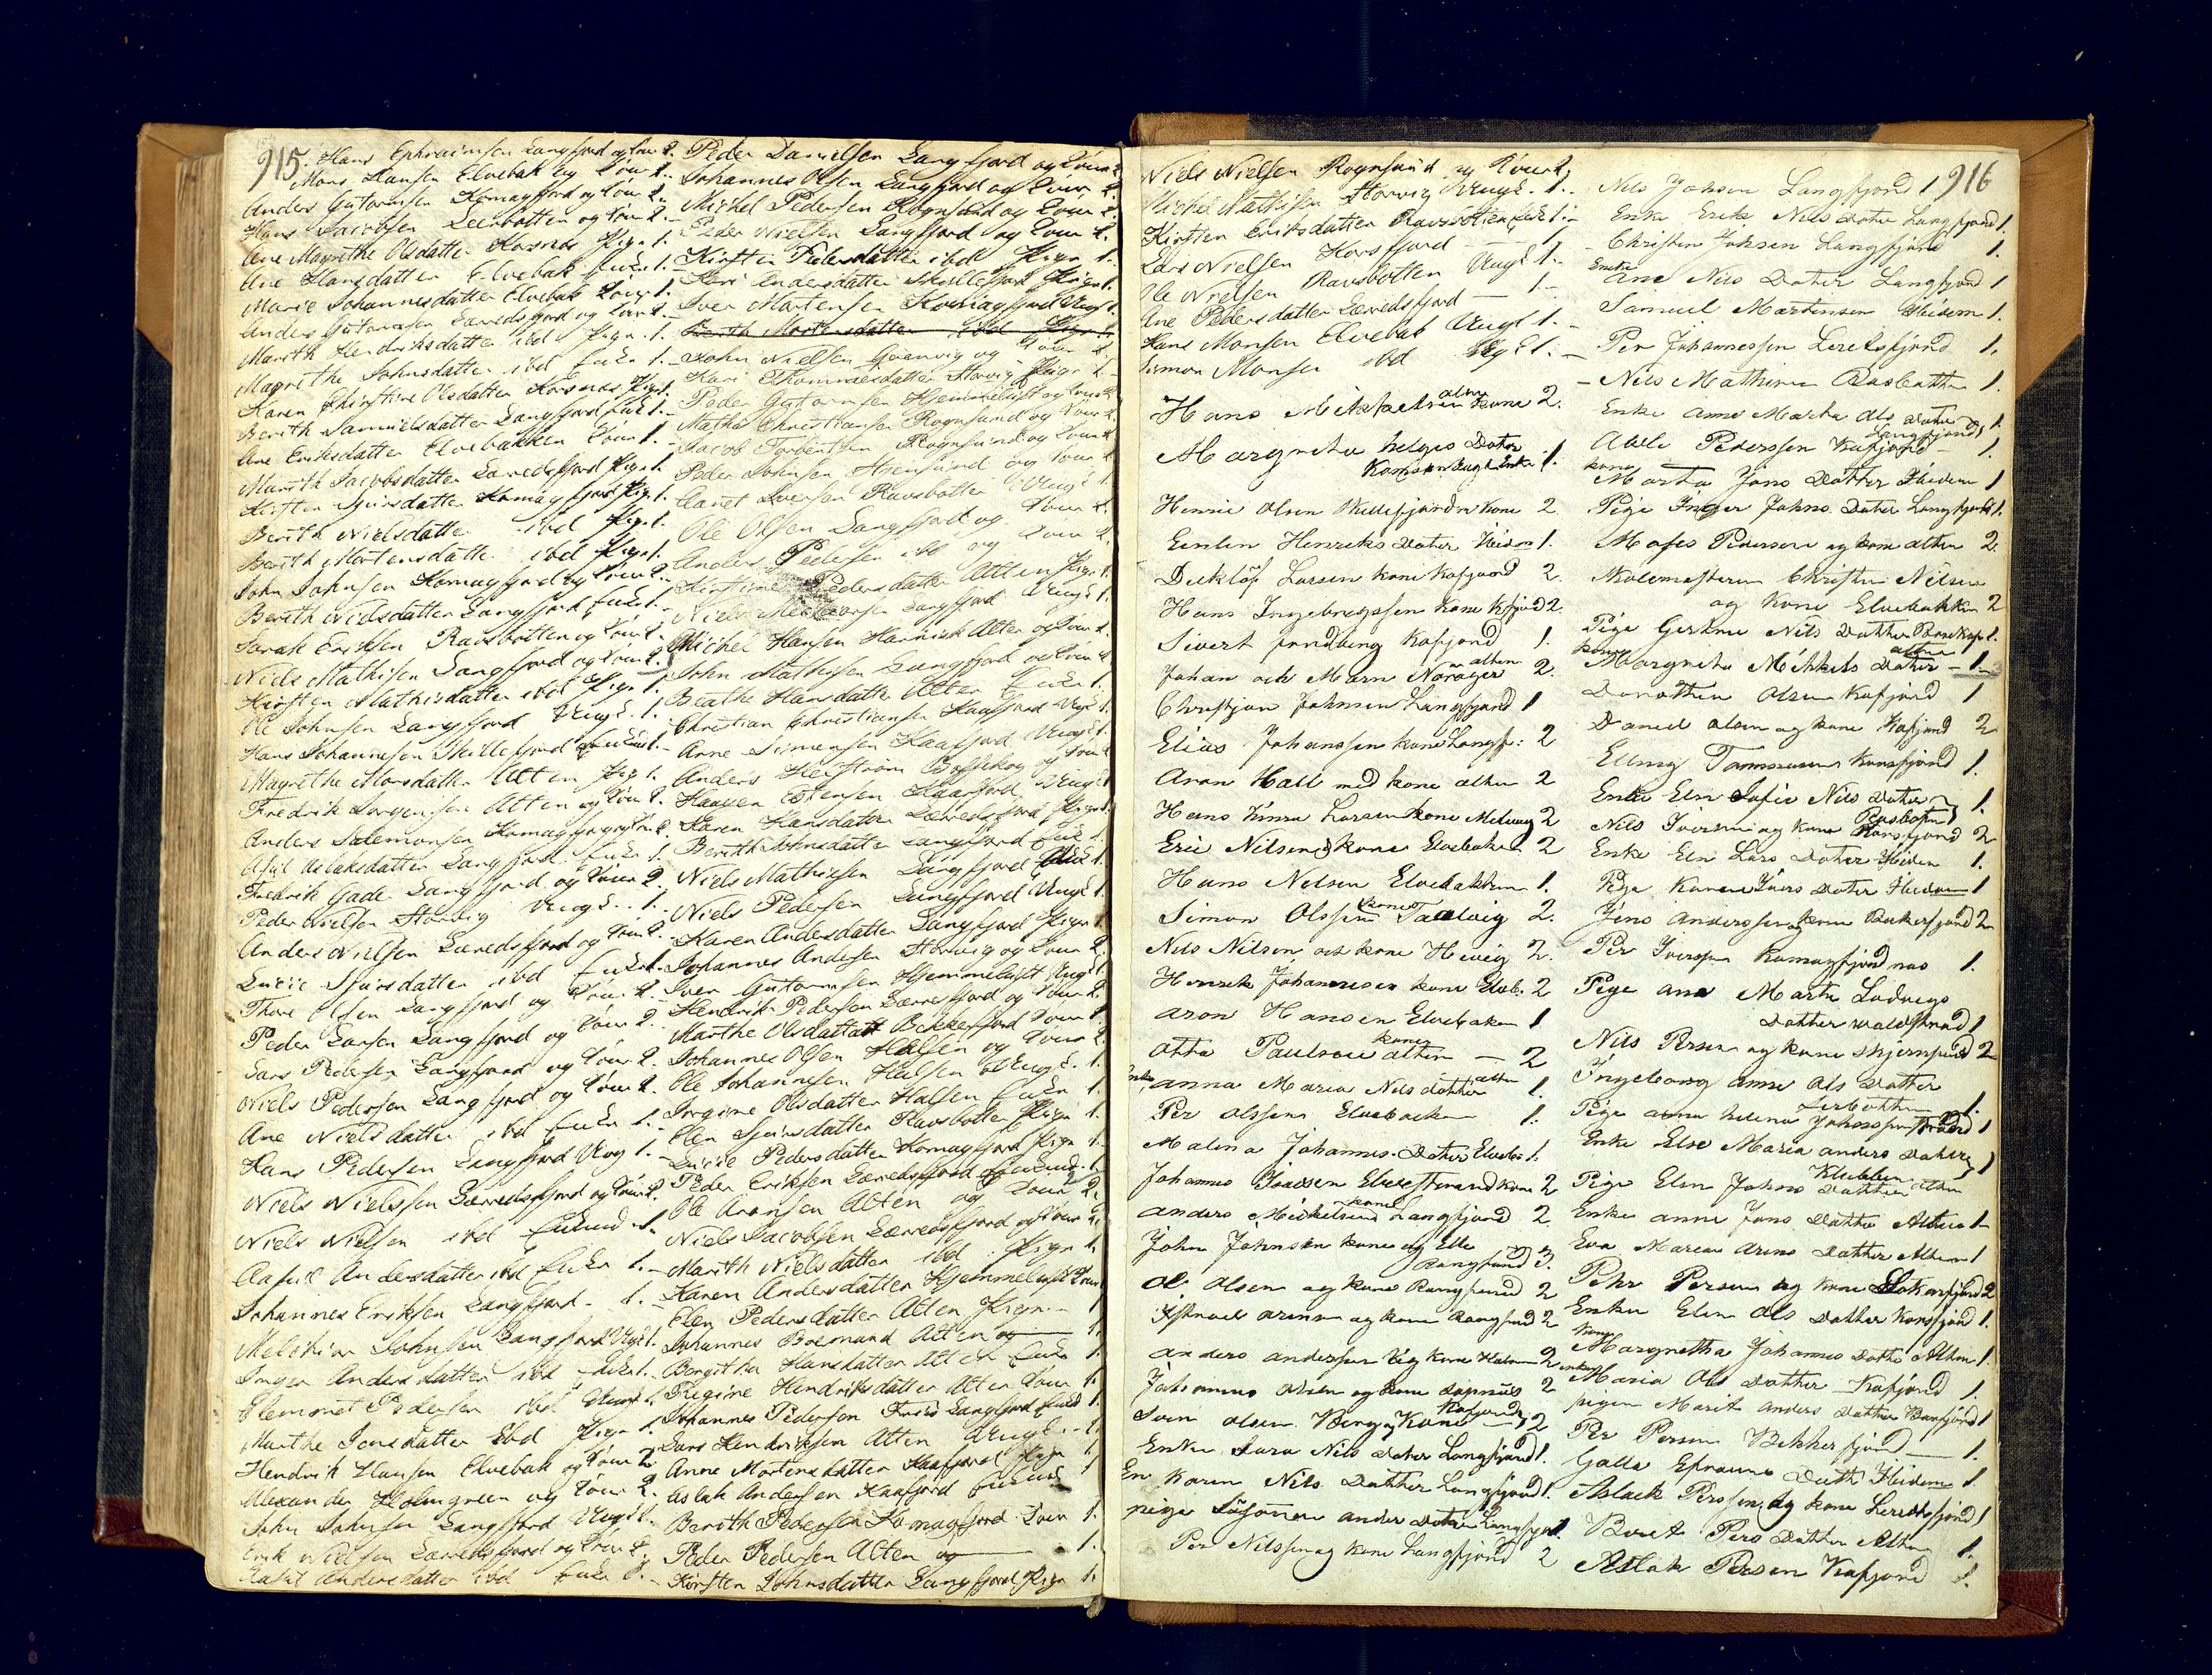 915.
Hans Ephraimsen Langfjord og Kone 2.
Mons Hansen Elvebak og Kone 2.
Anders Gutormsen Komagfjord og Kone 2.
Hans Jacobsen Leerbotten og Kone 2.
Ane Magrethe Olsdatter Korsnes Pige 1.
Ane Hansdatter Elvebak Enke 1.
Marie Johannesdatter Elvebak Kone 1.
Anders Gutormsen Lerredsfjord og Kone 2.
Marith Hendriksdatter ibd Pige 1.
Magrethe Johnsdatter ibd Enke 1.
Karen Christine Olsdatter Korsnes Pige 1.
Berith Samuelsdatter Langfjord Enke 1.
Ane Eriksdatter Elvebakken Kone 1.
Marith Jacobsdatter Lerredsfjord Pige 1.
Kirsten Sjursdatter Komagfjord Pige 1.
Berith Nielsdatter ibd Pige 1.
Berith Mortensdatter ibd Pige 1.
John Johnsen Komagfjord og Kone 2.
Berith Nielsdatter Langfjord Enke 1.
Isrock Eriksen Ravsbotten og Kone 2.
Niels Mathisen Langfjord og Kone 2.
Kirsten Mathisdatter ibd Pige 1.
Ole Johnsen Langfjord Ungk. 1.
Hans Johannesen Skillefjord
Magrethe Monsdatter Alten Pige 1.
Fredrik Jørgensen Alten og Kone 2.
Anders Salomonsen Komagfjord og Kone 2.
Aslaksdatter Langfjord Enke 1.
Fredrik Gade Langfjord og Kone 2.
Peder Nielsen Storvig Ungk. 1.
Anders Nielsen Lerredsfjord og Kone 2.
Lucie Sjursdatter ibd Enke 1.
Thore Olsen Langfjord og Kone 2.
Peder Larsen Langfjord og Kone 2.
Lars Pedersen Langfjord og Kone 2.
Niels Pedersen Langfjord og Kone 2.
Ane Nielsdatter ibd Enke 1.
Hans Pedersen Langfjord Ung 1.
Niels Nielsen Lerredsfjord og Kone 2.
Niels Nielsen ibd Enkemd 1.
Andersdatter ibd Enke 1.
Johannes Eriksen Langfjord 1.
Melchior Johnsen Langfjord Ungk 1.
Inger Andersdatter ibd Enke 1.
Klemmet Pedersen ibd Ungk 1.
Marthe Jonsdatter Ibd Pige 1.
Hendrik Hansen Elvebak og Kone 2
Alexander Holmgreen og Kone 2.
John Johnsen Langfjord Ungk 1.
Erik Nielsen Lerredsfjord og Kone 2.
Andersdatter ibd Enke 1.
Peder Danielsen Langfjord og Kone 2
Johannes Olsen Langfjord og Kone 2.
Michel Pedersen Rognsund og Kone 2.
Peder Nielsen Langfjord og Kone 2.
Kirsten Pedersdatter ibd Pige 1.
Kari Endersdatter Skillefjord Pige 1.
Iver Mortensen Komagfjord Ungk 1.
Berith Mortensdatter ibd Pige 1.
John Nielsen Goenvig og Kone 2
Kari Thommesdatter Storvig Pige 1.
Peder Gutormsen Hjemmeluft og Kone 2
Mathis Christiansen Rognsund og Kone 2.
Jacob Torbentsen Rognsund og Kone 2.
Peder Johnsen Stiernsund og Kone 2
Clauet Svensen Ravsbotten Ungk 1
Ole Olsen Langfjord og Kone 2.
Anders Pedersen ibd og Kone 2.
Kirstine Pedersdatter Alten Pige 1.
Niels Langfjord Ungk 1.
Michel Hansen Alten og Kone 2.
John Mathisen Langfjord og Kone 2
Beathe Hansdatter Alten Enke 1.
Christian Christiansen Kaafjord Ungk 1
Arne Simensen Kaafjord Ungk 1.
Anders Heistrøm Bossekop og Kone 2
Haaven Estensen Kaafjord Ungk 1
Karen Hansdatter Lerredsfjord Pige 1
Berith Johnsdatter Langfjord Enke 1
Niels Mathiesen Langfjord Ungk 1.
Niels Pedersen Langfjord Ungk 1.
Karen Andersdatter Langfjord Pige 1
Johannes Andersen Storvig og Kone 2.
Iver Gutormsen Hjemmeluft Ungk 1.
Hendrik Pedersen Lerresfjord og Kone 2.
Marthe Olsdatter Bekkerfjord Kone 1
Johannes Olsen Halsen og Kone 2
Ole Johannesen Halsen Ungk. 1.
Jørgine Olsdatter Halsen Enke 1.
Elen Sjursdatter Ravsbotten Pige 1.
Lucie Pedersdatter Komagfjord Pige 1.
Peder Eriksen Lerredsfjord 2
Ole Aronsen Alten og Kone 2.
Niels Jacobsen Lerredsfjord og Kone 2
Marith Nielsdatter ibd Pige 1.
Karen Andersdatter Hjemmeluft Kone
Elen Pedersdatter Alten Pige 1
Johannes Boemand Alten og 1.
Bergitha Hansdatter Alten Enke 1
Regine Hendriksdatter Alten Kone 1
Johannes Pedersen Friis Langfjord Enkd 1
Lars Hendriksen Alten Ungk 1.
Anne Mortensdatter Kaafjord Pige 1
Aslak Andersen Kaafjord Enkemd
Berith Pedersen Komagfjord Kone 1.
Peder Pedersen Alten og 1.
Kirsten Johnsdatter Langfjord Pige 1.
Niels Nielsen Rognsund og Kone 2
Michel Mathisen Storvig Ungk. 1.
Kirsten Eriksdatter Ravsbotten Enke 1.
Lars Nielsen Korsfjord 1
Ole Nielsen Ravsbotten Ungk 1.
Ane Pedersdatter Lerredsfjord 1.
Hans Monsen Elvebak Ungk 1.
Simon Monsen ibd Ungk 1.
Hans Mikkelsen alten kone 2.
Margreta helges Dater
Enke 1.
Henric Olsen Skillefjord n kone 2
Eenlin Henriks Dater Heidem 1.
Ditlöf Lassen kone Kafjord 2
Hans Ingebregssen kone Kfjord 2.
Sivert Kafjord 1.
Johan och Marn Norager alten 2.
Christjan Johnsen Langfjord 1
Elias Johanssen kone Langf: 2
Aron Hall med kone alten 2
Hans Larsen kone 2
Eric Nilsen kone Elvebaken 2
Hans Nelsen Elvebakken 1.
Simon Olssen kone Taalvig 2.
Nils Nilsen och kone 2.
Henrik Johannesen kone Elveb. 2
aron Hansen Elvebaken 1
Otto Paulsen kone alten 2
Enke anna Maria Nils datter alten 1.
Per olssen Elvebacken 1.
Malena Johannes Dater Elveba 1.
Johannes Isacssen Elvestrand kone 2
anders Mickelsen kone Langfjord 2
John Johnsen kone og
Rangsund 3.
Ole Olsen og kone Rangsund 2
arensen og kone Rangsund 2
anders anderssen og kone 2
Johannes Olsen og kone 2
Sven olsen Berg og Kone Kafjord 2
Enke Sara Nils Dater Langfjord 1.
En Karen Nils Datter Langfjord 1.
pige anders Dater Langfjord 1.
Per Nilssen og kone Langfjord 2
916
Nils Johsen Langfjord 1
Enke Erik Nils Dater Langfjord 1.
Christen Johsen Langfjord 1.
Enke Ane Nils Dater Langfjord 1
Samuel Martensen Heidem 1.
Per Johannessen Leretsfjord 1.
Nils Mathisen Rasbatten 1.
Enke anne Marta Ols Dater
Langfjord 1.
Abele Pederssen Kafjord 1.
kone Marta Jons Datter Heidem 1
Pige Inger Johns Dater Langfjord 1.
Moses Pedersen og kone alten 2.
Skolemesteren Christen Nilsen
og Kone Elvebakken 2
Pige Nils Datter Bosekop 1.
kone Margreta Mikkels Dater alten 1.
Olsen Kafjord 1
Daniel olsen og kone Kafjord 2
Elling Tommesen Korsfjord 1.
Enke Elen Sofie Nils Dater
Rasboten 1.
Nils Iversen og kone Korsfjord 2
Enke Elen Lars Dater Heidem 1.
Pige Karen Ivers Dater Heidem 1
Jens anderssen og kone Bekerfjord 2
Per Iverssen Komagfjord nes 1.
Pige ane Marta Ludvigs
Datter 1
Nils Persen og kone Stjernsund 2
Ingeborg anne Ols Datter
Lerbotten 1.
Pige anna helena 1
Enke Else Maria anders Dater
Klubben 1
Pige Elen Johns Datter alten
Enke anne Jons Datter Alten 1
Eva Maria arens Datter Alten 1
Pehr Persen og kone 2
Enke Elen Ols Datter Korsfjord 1.
Kone Margretha Johannes Datter Alten 1.
enke Maria Ols Datter Kafjord 1.
pigen Marit anders Datter 1
Per Persen Bekkerfjord 1.
Efraims Datt Heidem 1
Aslack Perssen og kone Leretsfjord 1
Beret Pers Datter Alten 1.
Aslak Persen Kafjord 1.